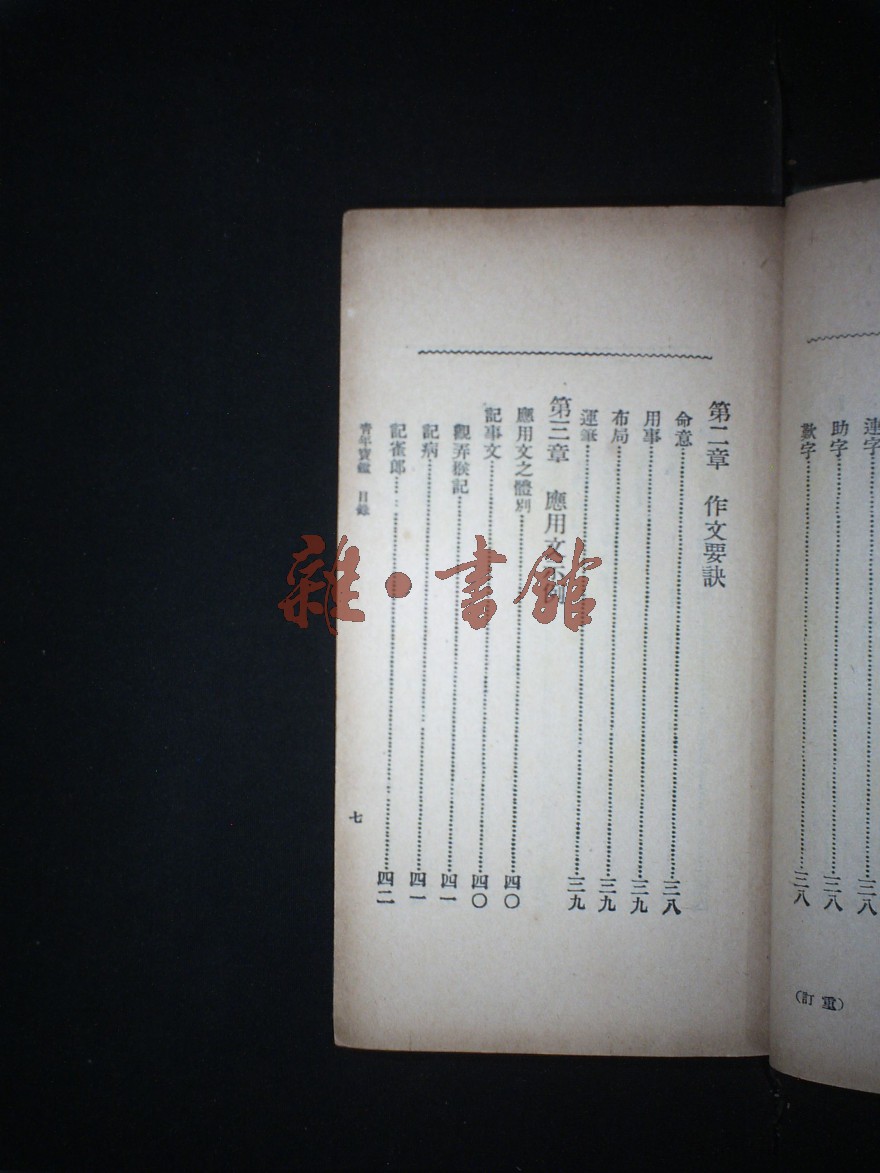 連字 三八
助字 三八
歎字 三八
(重訂)
第二章 作文要訣
命意 三八
用事 三九
布局 三九
運筆 三九
第三章 應用文示例
應用文之體別 四〇
記事文 四〇
觀弄猴記 四一
記病 四一
記雀郎 四二
青年寶鑑 目錄
七
雜·書館